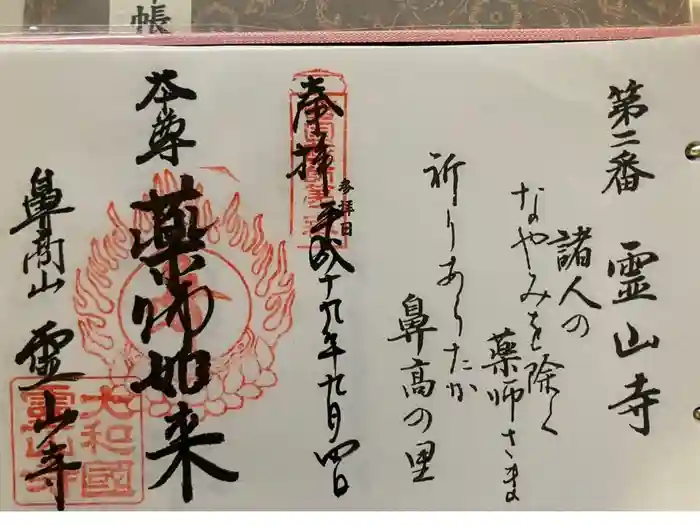 帳
第二番 霊山寺
諸人の
なやみを除く
薬師さま
祈りあらたか
鼻高の里
奉拝
参拝日
平成十九年九月四日
本尊
薬師如来
鼻高山 霊山寺
大和國
霊山寺